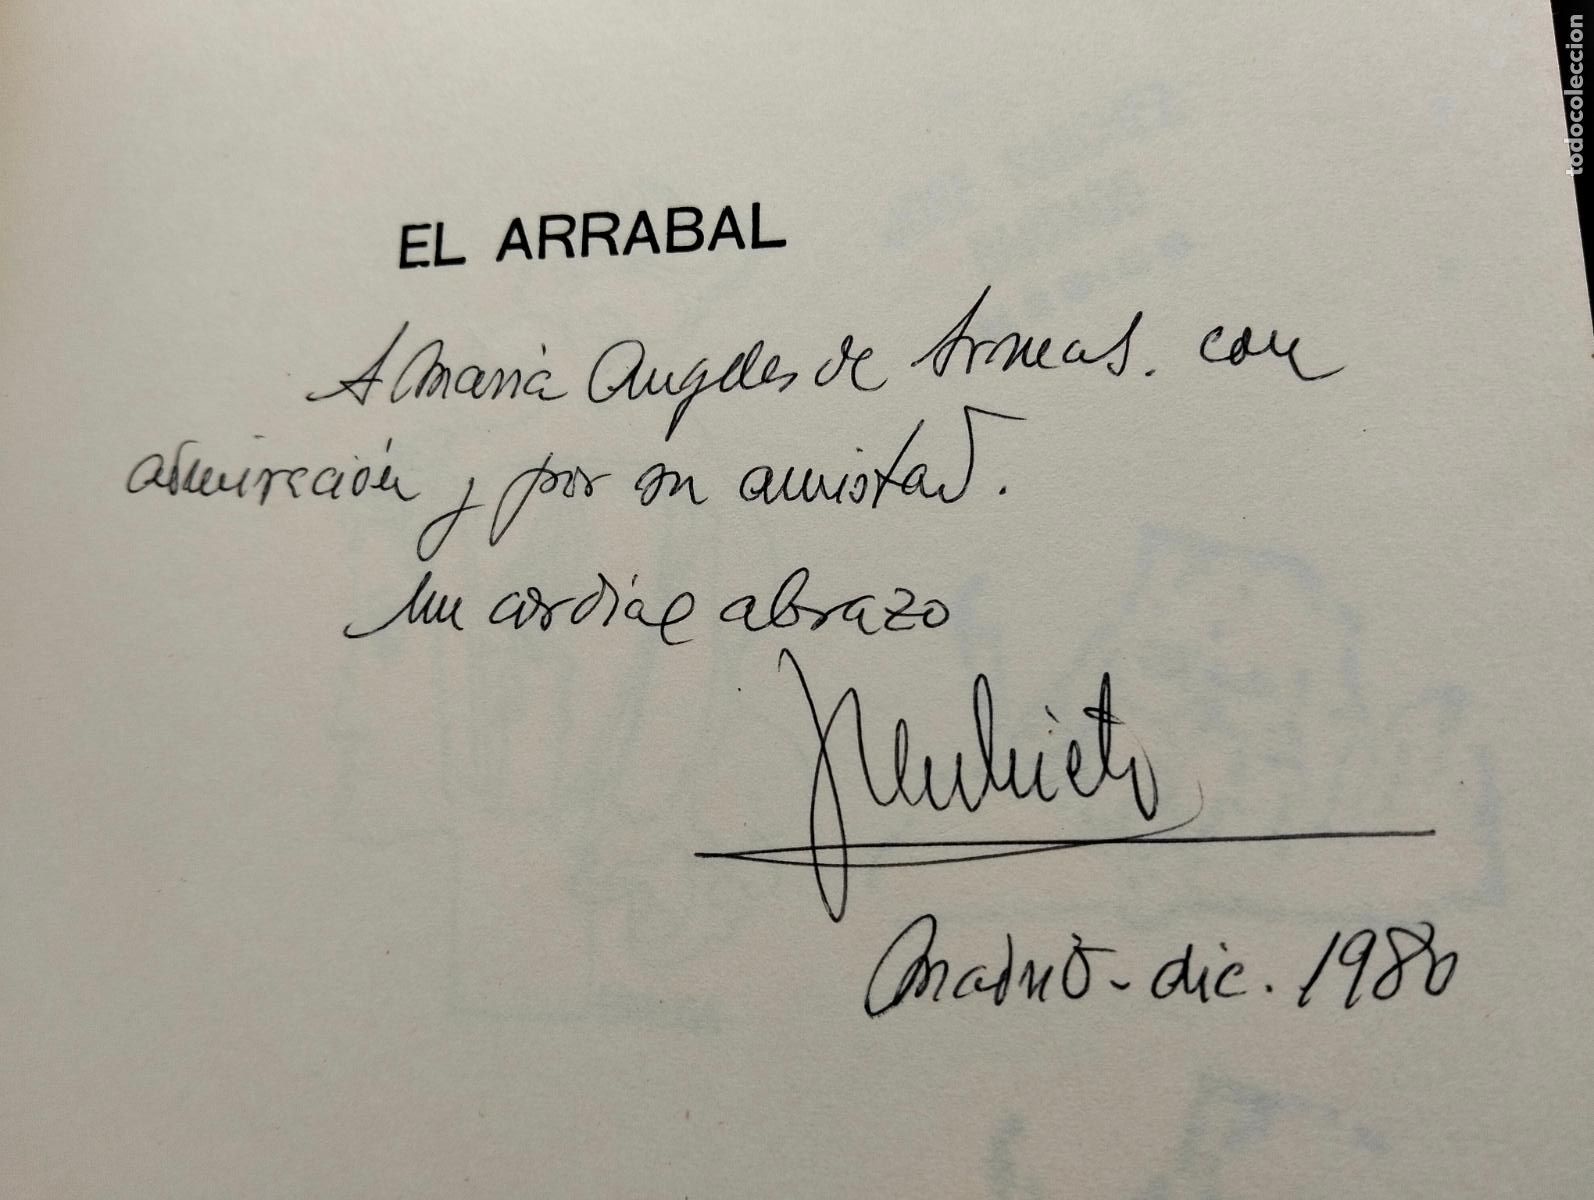 EL ARRABAL
A Maria Angeles de Armas. con
admiración y por su amistad.
Un cordial abrazo
Madrid - dic. 1980
todocoleccion